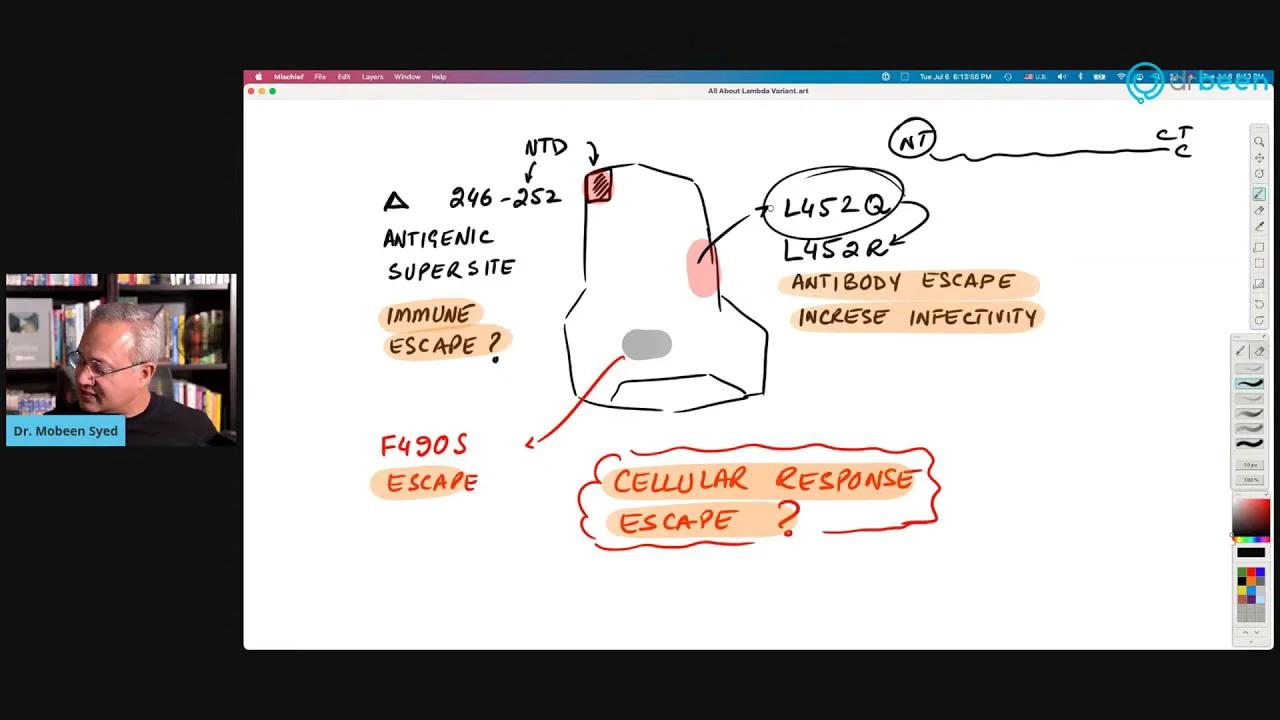 drbeen
Mischief File Edit Layers Window Help
Tue Jul 6 6:13:56 PM
U.S.
All About Lambda Variant.art
NTD
NT
CT
C
Δ 246-252
ANTIGENIC
SUPERSITE
IMMUNE
ESCAPE ?
L452Q
L452R
ANTIBODY ESCAPE
INCRESE INFECTIVITY
Dr. Mobeen Syed
F490S
ESCAPE
CELLULAR RESPONSE
ESCAPE ?
10 px
100 %